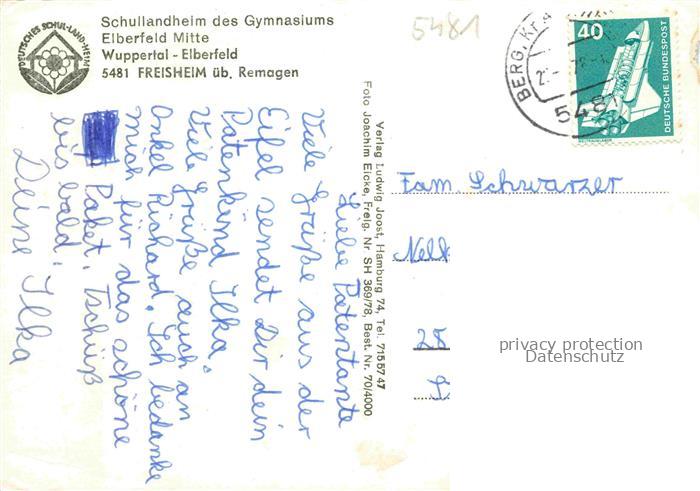 DEUTSCHES SCHUL-LAND-HEIM
Schullandheim des Gymnasiums
Elberfeld Mitte
Wuppertal - Elberfeld
5481 FREISHEIM üb. Remagen
5481
BERG, KR.
548
40
DEUTSCHE BUNDESPOST
Liebe Patentante
Viele Grüße aus der
Eifel sendet Dir dein
Patenkind Ilka.
Viele Grüße auch an
Onkel Richard. Ich bedanke
mich für das schöne
Paket. Tschüß
bis bald!
Deine Ilka
Verlag Ludwig Joost, Hamburg 74, Tel. 7155747
Foto Joachim Eicke, Freig. Nr. SH 369/78, Best. Nr. 70/4000
Fam. Schwarzer
Nelk
28
privacy protection
Datenschutz